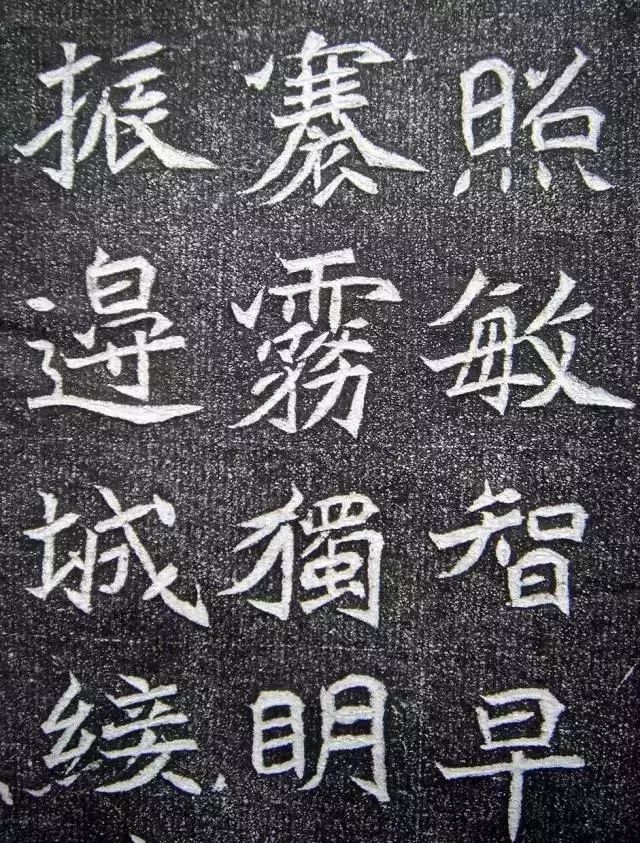 照敏智早
褰霧獨明
振邊城綏